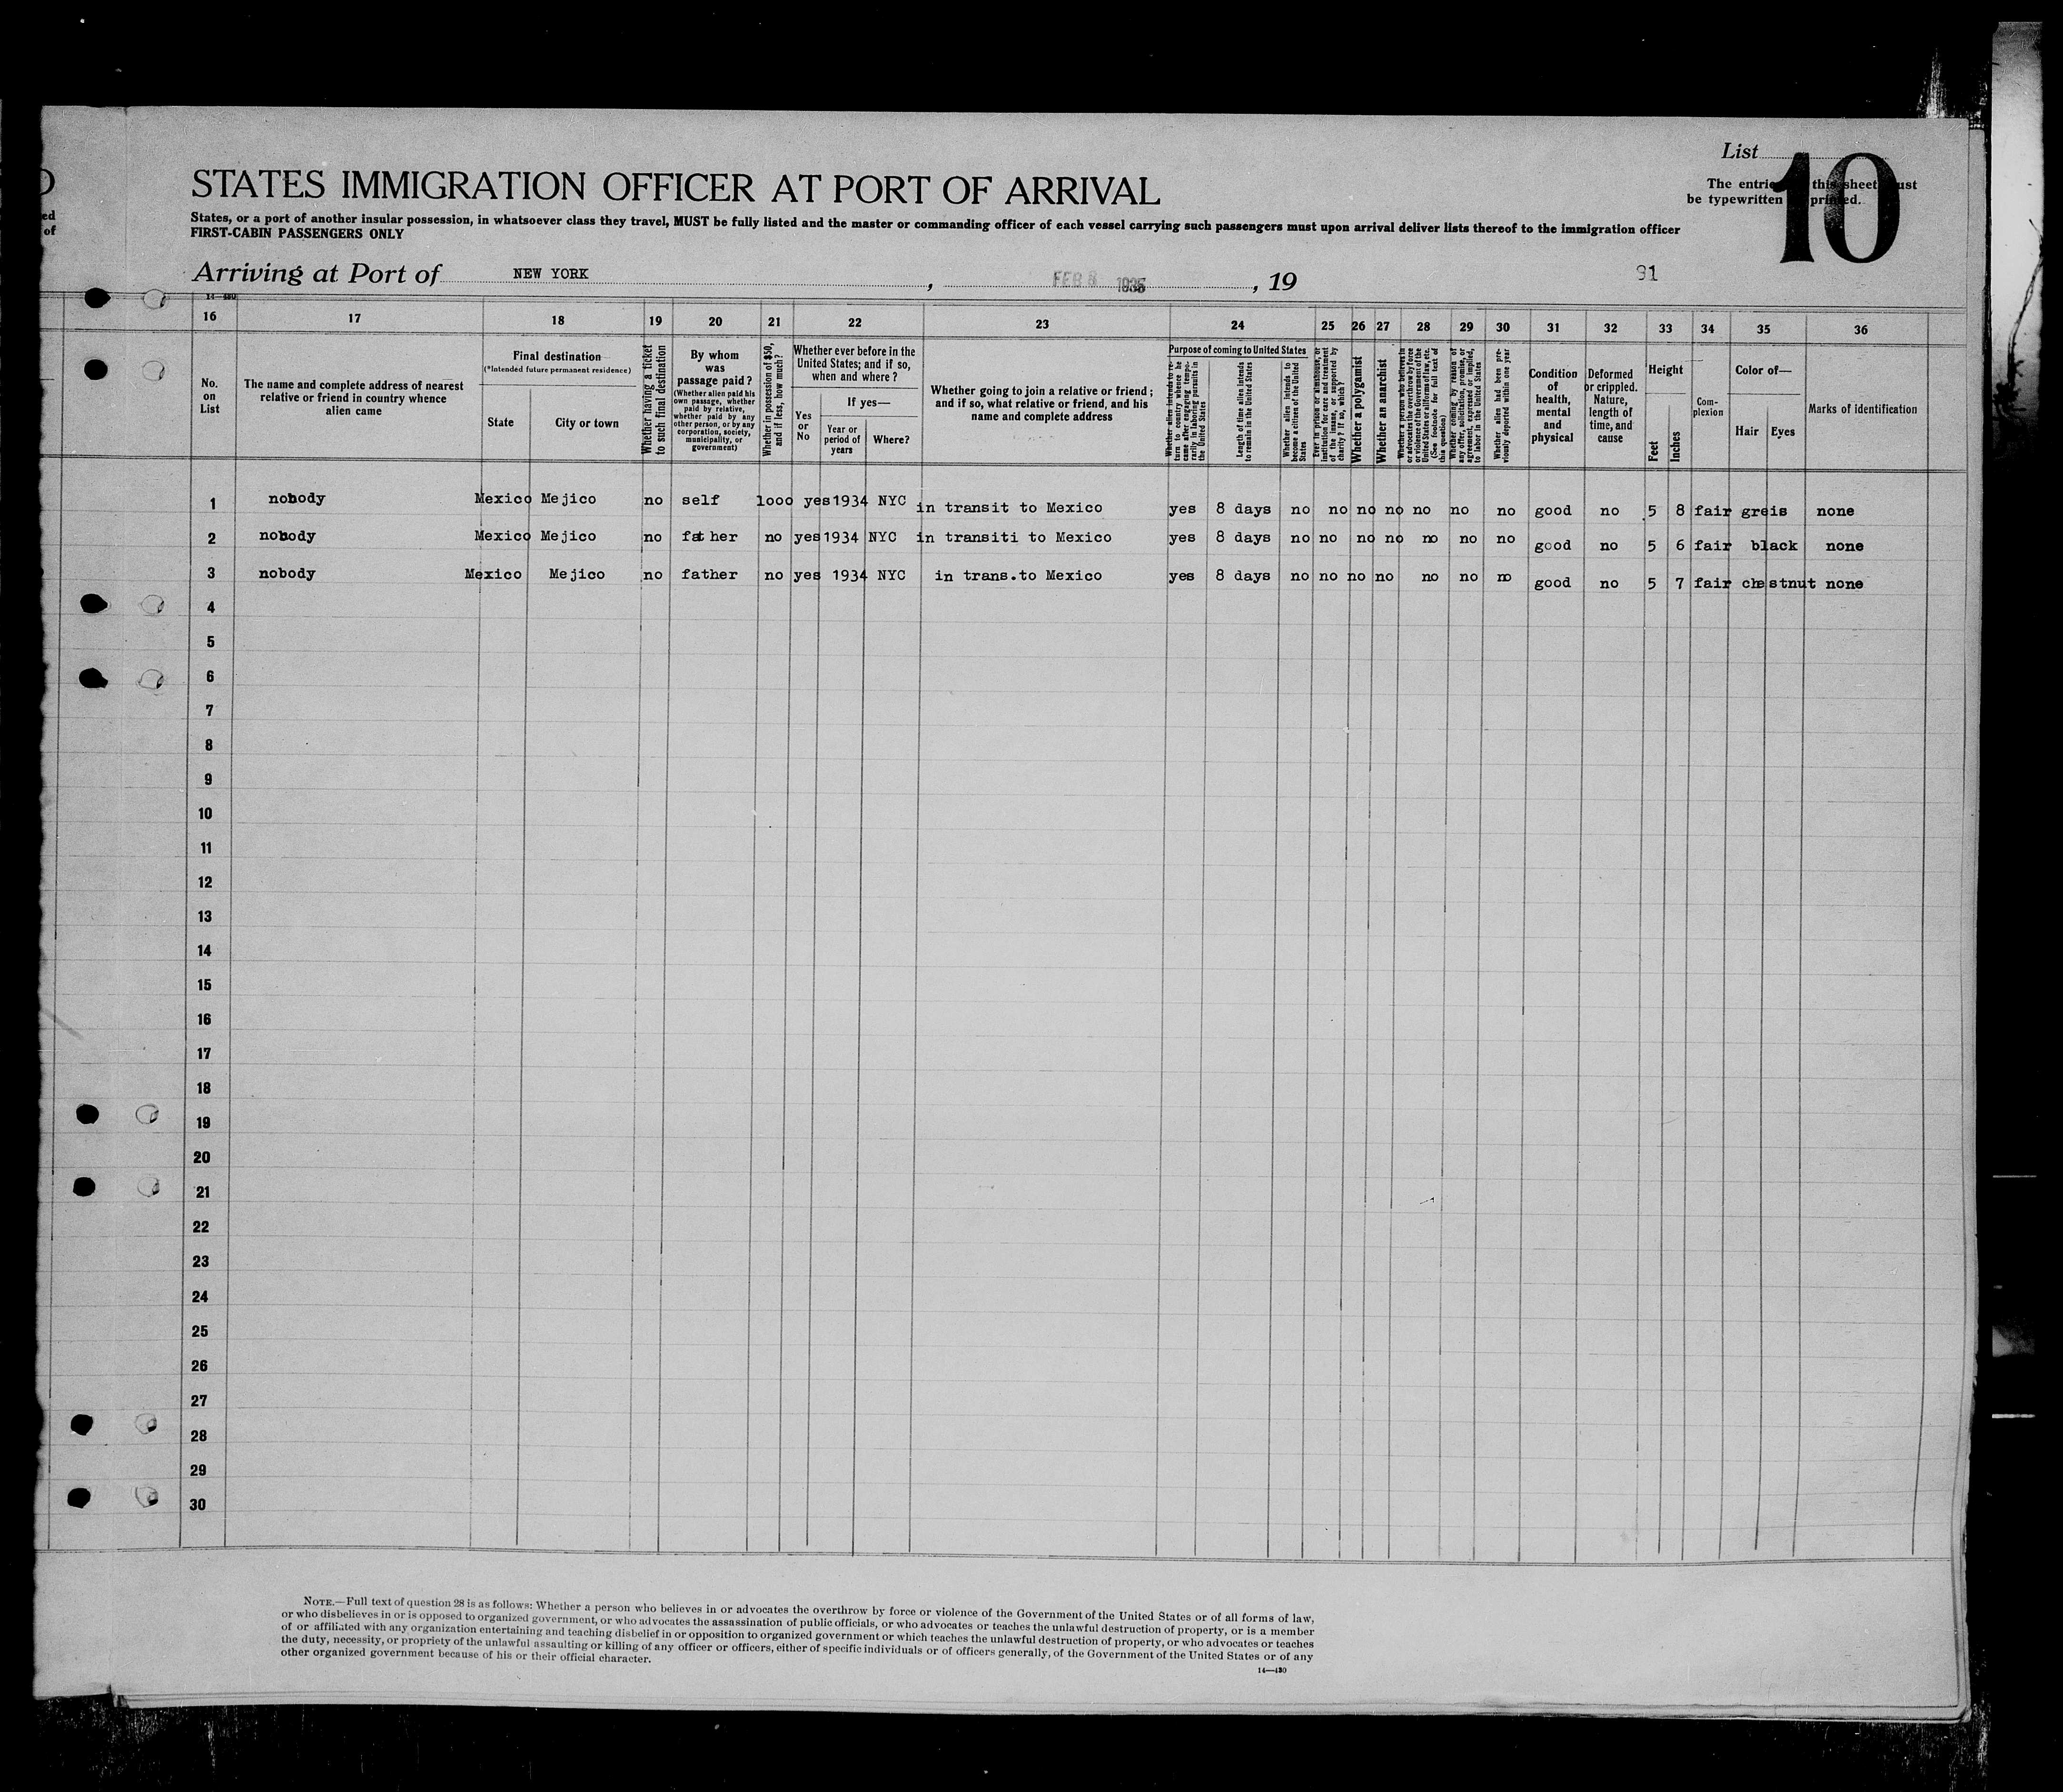 List
10
The entri this sheet ust
be typewritten pri ed.
ed
of
STATES IMMIGRATION OFFICER AT PORT OF ARRIVAL
States, or a port of another insular possession, in whatsoever class they travel, MUST be fully listed and the master or commanding officer of each vessel carrying such passengers must upon arrival deliver lists thereof to the immigration officer
FIRST-CABIN PASSENGERS ONLY
Arriving at Port of NEW YORK , FEB 8 , 19
91
14—430
16 17 18 19 20 21 22 23 24 25 26 27 28 29 30 31 32 33 34 35 36
No.
on
List
The name and complete address of nearest
relative or friend in country whence
alien came
Final destination
(*Intended future permanent residence)
State
City or town
Whether having a ticket
to such final destination
By whom
was
passage paid?
(Whether alien paid his
own passage, whether
paid by relative,
whether paid by any
other person, or by any
corporation, society,
municipality, or
government)
Whether in possession of $50,
and if less, how much?
Whether ever before in the
United States; and if so,
when and where?
Yes
or
No
If yes—
Year or
period of
years
Where?
Whether going to join a relative or friend;
and if so, what relative or friend, and his
name and complete address
Purpose of coming to United States
Whether alien intends to re-
turn to country whence he
came after engaging tempo-
rarily in laboring pursuits in
the United States
Length of time alien intends
to remain in the United States
Whether alien intends to
become a citizen of the United
States
Ever in prison or almshouse, or
institution for care and treatment
of the insane, or supported by
charity? If so, which?
Whether a polygamist
Whether an anarchist
Whether a person who believes in
or advocates the overthrow by force
or violence of the Government of the
United States or all forms of law, etc.
(See footnote for full text of
this question)
Whether coming by reason of
any offer, solicitation, promise, or
agreement, expressed or implied,
to labor in the United States
Whether alien had been pre-
viously deported within one year
Condition
of
health,
mental
and
physical
Deformed
or crippled.
Nature,
length of
time, and
cause
Height
Feet
Inches
Com-
plexion
Color of—
Hair
Eyes
Marks of identification
1 nobody Mexico Mejico no self 1000 yes 1934 NYC in transit to Mexico yes 8 days no no no no no no no good no 5 8 fair greis none
2 nobody Mexico Mejico no father no yes 1934 NYC in transiti to Mexico yes 8 days no no no no no no no good no 5 6 fair black none
3 nobody Mexico Mejico no father no yes 1934 NYC in trans.to Mexico yes 8 days no no no no no no no good no 5 7 fair chestnut none
4
5
6
7
8
9
10
11
12
13
14
15
16
17
18
19
20
21
22
23
24
25
26
27
28
29
30
NOTE.—Full text of question 28 is as follows: Whether a person who believes in or advocates the overthrow by force or violence of the Government of the United States or of all forms of law,
or who disbelieves in or is opposed to organized government, or who advocates the assassination of public officials, or who advocates or teaches the unlawful destruction of property, or is a member
of or affiliated with any organization entertaining and teaching disbelief in or opposition to organized government or which teaches the unlawful destruction of property, or who advocates or teaches
the duty, necessity, or propriety of the unlawful assaulting or killing of any officer or officers, either of specific individuals or of officers generally, of the Government of the United States or of any
other organized government because of his or their official character.
14—430